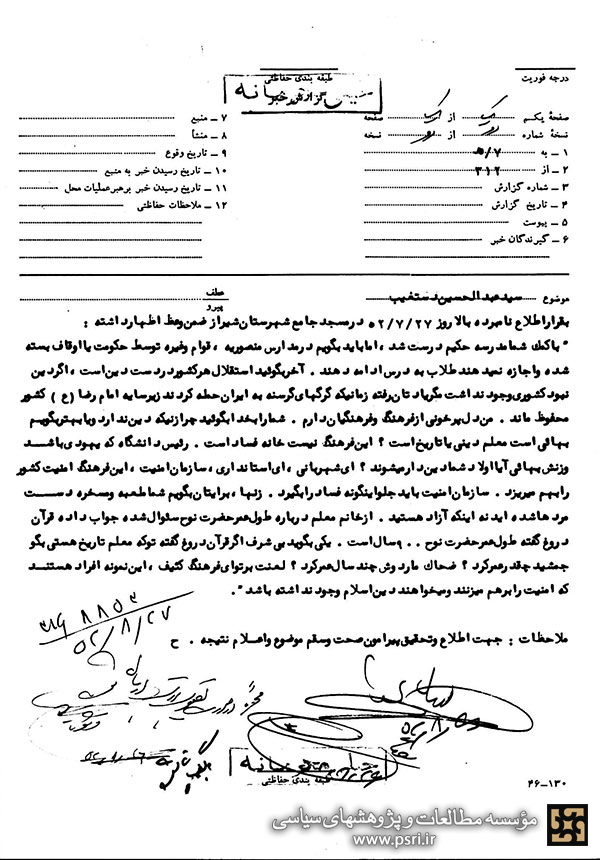 درجه فوریت
طبقه بندی حفاظتی
گزارش خبر
صفحهٔ یکم از صفحه
نسخهٔ شماره از نسخه
۱ ـ به ۷/ﻫ
۲ ـ از ۳۱۲
۳ ـ شماره گزارش
۴ ـ تاریخ گزارش
۵ ـ پیوست
۶ ـ گیرندگان خبر
۷ ـ منبع
۸ ـ منشأ
۹ ـ تاریخ وقوع
۱۰ ـ تاریخ رسیدن خبر به منبع
۱۱ ـ تاریخ رسیدن خبر برهبر عملیات محل
۱۲ ـ ملاحظات حفاظتی
موضوع سید عبدالحسین دستغیب
عطف
پیرو
بقرار اطلاع نامبرده بالا روز ۵۲/۷/۲۷ در مسجد جامع شهرستان شیراز ضمن وعظ اظهار داشته :
" باکمک شما مدرسه حکیم درست شد ، اما باید بگویم در مدارس منصوریه ، قوام وغیره توسط حکومت یا اوقاف بسته
شده واجازه نمید هند طلاب به درس ادامه د هند . آخر بگوئید استقلال هرکشور در دست دین است ، اگردین
نبود کشوری وجود نداشت مگر یادتان رفته زمانیکه گرگهای گرسنه به ایران حمله کردند زیرسایه امام رضا ( ع ) کشور
محفوظ ماند . من دل پرخونی از فرهنگ وفرهنگیان دارم . شمارابخدا بگوئید چرا زنیکه دین ندارد ویابهتربگویم
بهائی است معلم دینی یا تاریخ است ؟ این فرهنگ نیست خانه فساد است . رئیس دانشگاه که یهودی باشد
وزنش بهائی آیا اولاد شمادین دارمیشوند ؟ ای شهربانی ، ای استانداری ، سازمان امنیت ، این فرهنگ امنیت کشور
رابهم میریزد . سازمان امنیت باید جلواینگونه فساد رابگیرد . زنها ، برایتان بگویم شما طعمه ومسخره دست
مردها شده اید نه اینکه آزاد هستید . ازخانم معلم درباره طول عمر حضرت نوح سئوال شده جواب داده قرآن
دروغ گفته طول عمر حضرت نوح ۹۰۰ سال است . یکی بگوید بی شرف اگر قرآن دروغ گفته توکه معلم تاریخ هستی بگو
جمشید چقدر عمرکرد ؟ ضحاک ماردوش چند سال عمرکرد ؟ لعنت برتوای فرهنگ کثیف ، این نمونه افراد هستند
که امنیت رابرهم میزنند ومیخواهند دین اسلام وجود نداشته باشد "
ملاحظات : جهت اطلاع وتحقیق پیرامون صحت وسقم موضوع واعلام نتیجه . ح
۵۲/۸/۲۷
طبقه بندی حفاظتی
۴۶-۱۳۰
مؤسسه مطالعات و پژوهشهای سیاسی
www.psri.ir